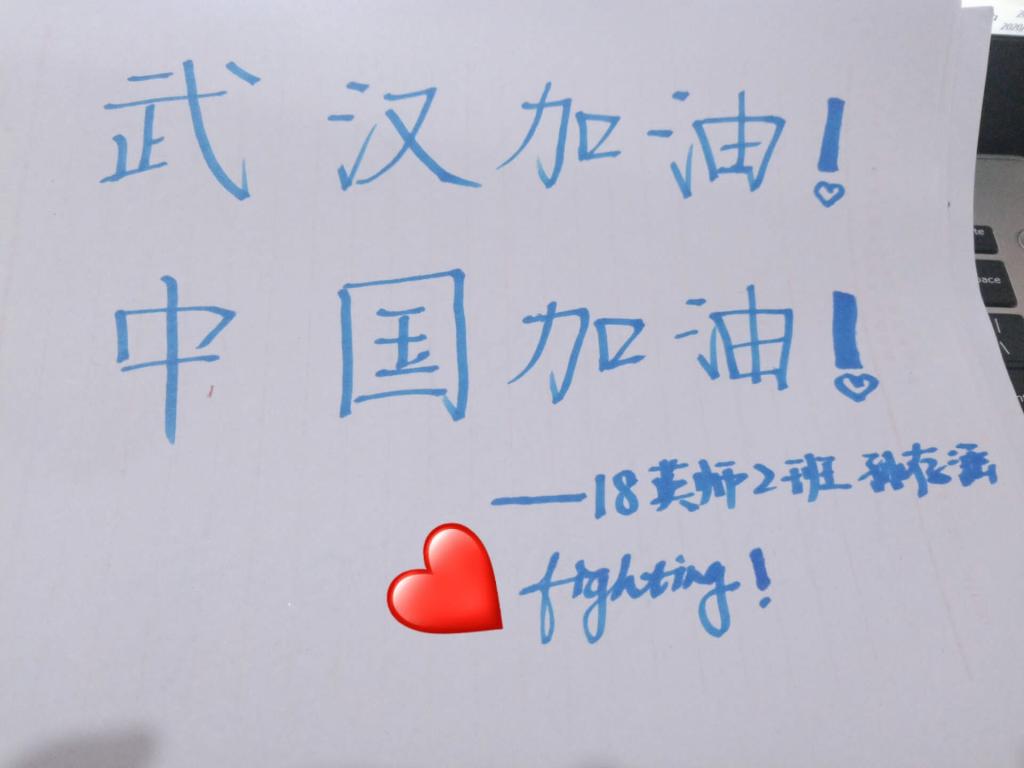 武汉加油!
中国加油!
——18英师2班 孙存涵
fighting!